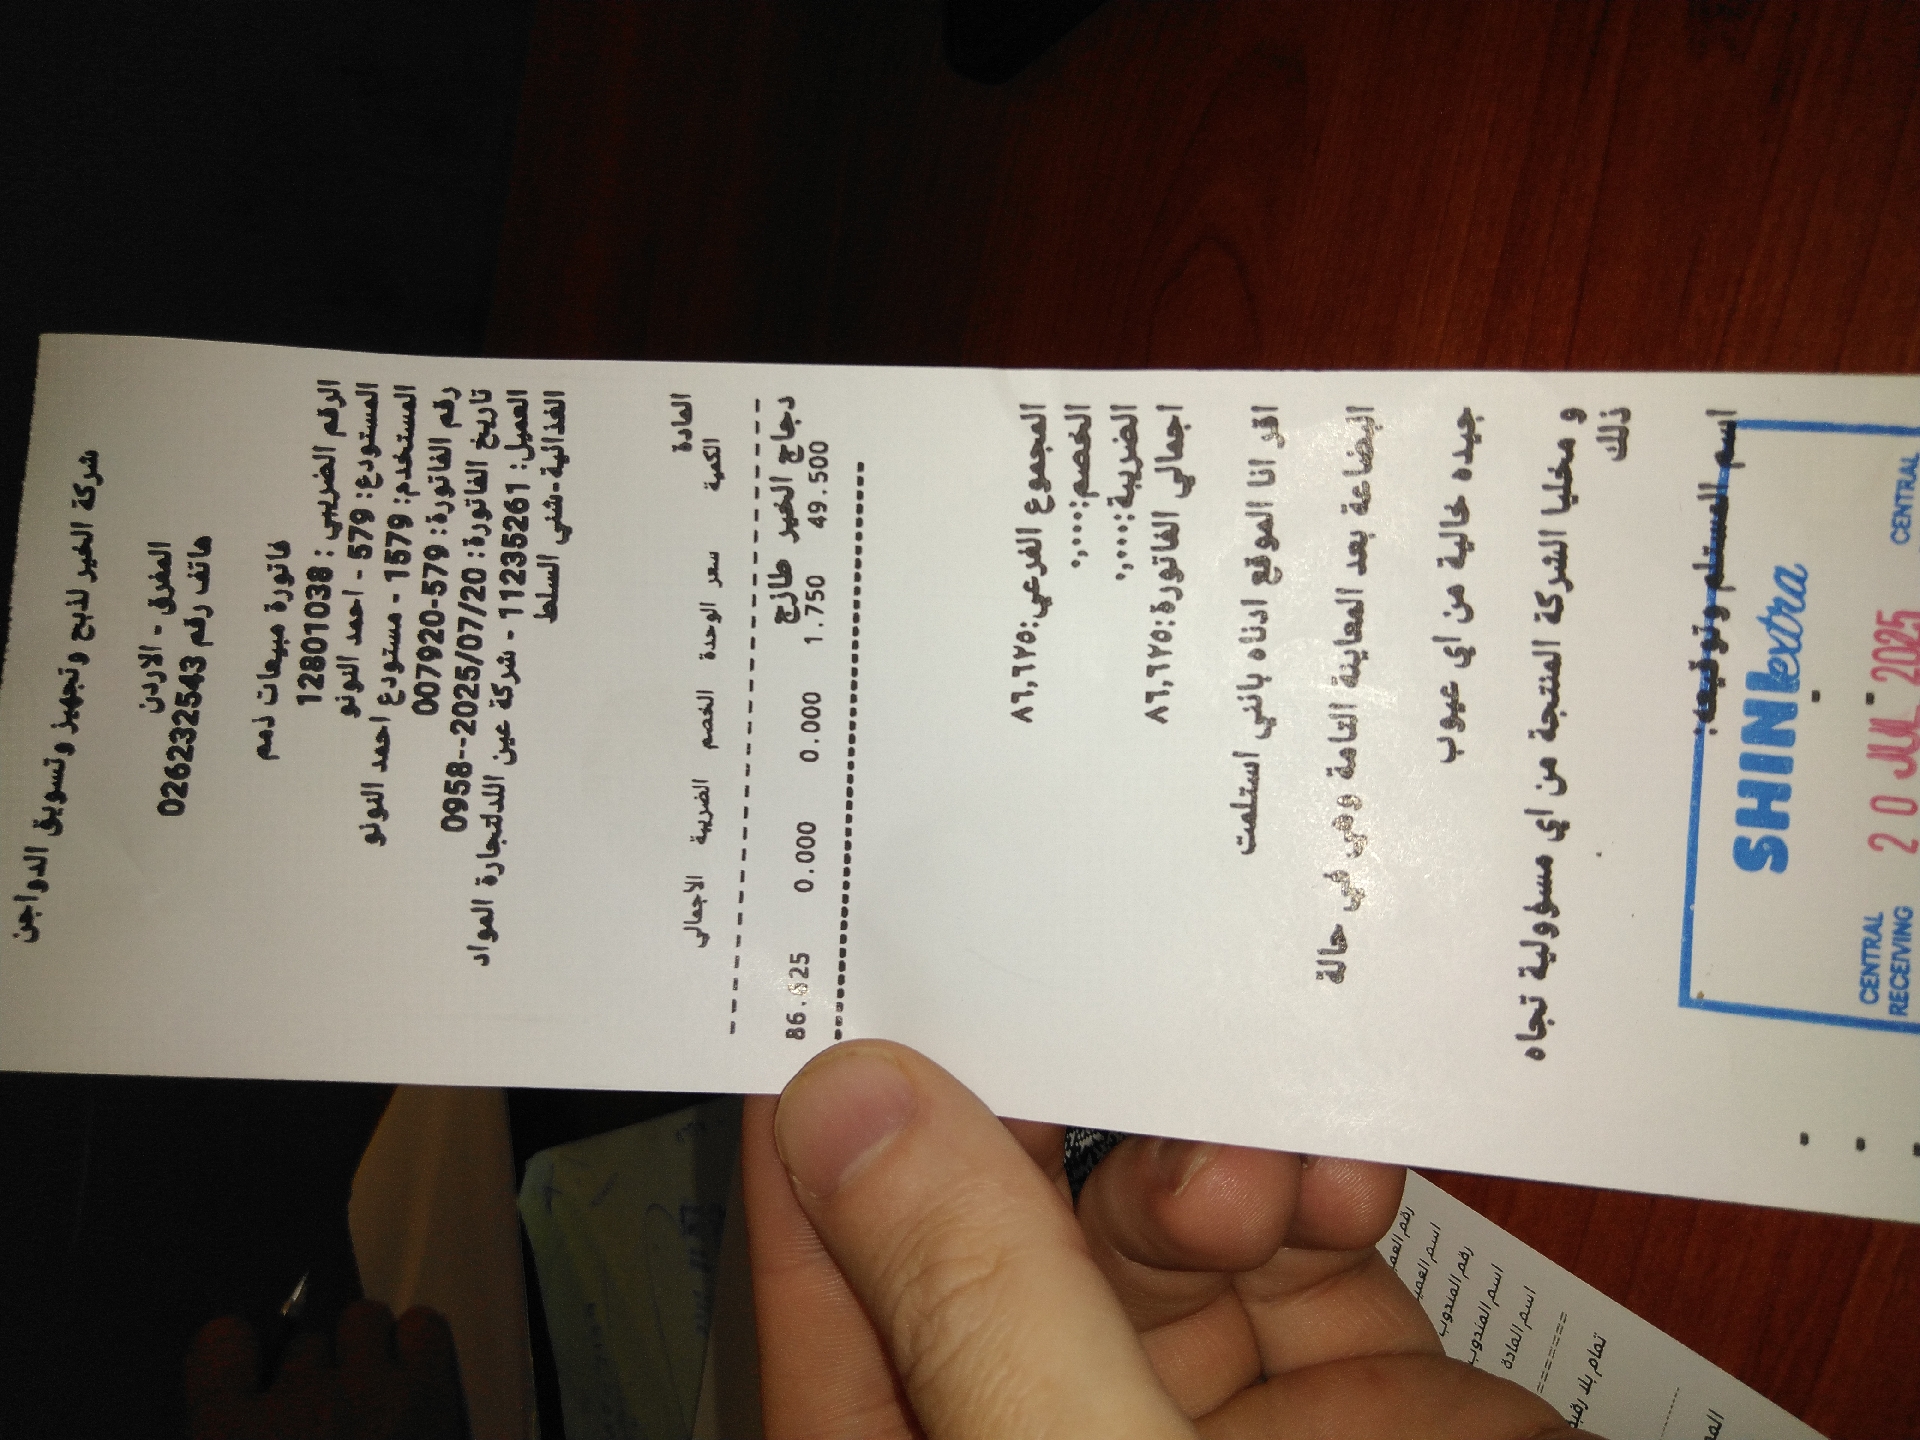 شركة الخير لذبح وتجهيز وتسويق الدواجن
المفرق - الاردن
هاتف رقم 0262332543
فاتورة مبيعات ذمم
الرقم الضريبي : 12801038
المستودع: 579 - احمد النونو
المستخدم: 1579 - مستودع احمد النونو
رقم الفاتورة: 579-007920
تاريخ الفاتورة: 2025/07/20--0958
العميل: 11235261 - شركة عين اللدلتجارة المواد
الغذائية-شني السلط
المادة
الكمية سعر الوحدة الخصم الضريبة الاجمالي
دجاج الخير طازج
49.500 1.750 0.000 0.000 86.625
المجموع الفرعي:٨٦,٦٢٥
الخصم:٠,٠٠٠
الضريبة:٠,٠٠٠
اجمالي الفاتورة:٨٦,٦٢٥
اقر انا الموقع ادناه بانني استلمت
البضاعة بعد المعاينة التامة وهي في حالة
جيده خالية من اي عيوب
و مخليا الشركة المنتجة من اي مسؤولية تجاه
ذلك
اسم المستلم وتوقيعه:
SHINI extra
CENTRAL
RECEIVING
20 JUL 2025
CENTRAL
رقم العم
اسم العمي
رقم المندوب
اسم المندوب
اسم المادة
تمام بلا رقبة